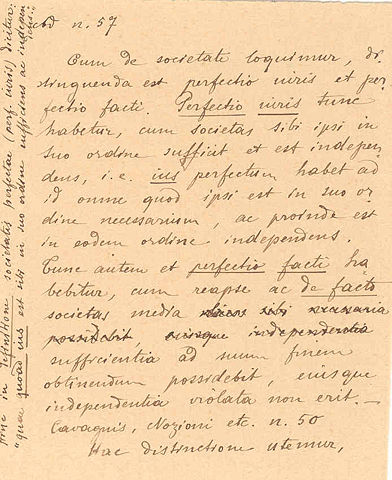 ad n. 57
Cum de societate loquimur, di-
stinguenda est perfectio iuris et per-
fectio facti. Perfectio iuris tunc
habetur, cum societas sibi ipsi in
suo ordine sufficit et est indepen
dens, i.e. ius perfectum habet ad
id omne quod ipsi est in suo or-
dine necessarium, ac proinde est
in eodem ordine independens.
Tunc autem et perfectio facti ha
bebitur, cum reapse ac de facto
societas media sibi necessaria
possidebit, eiusque independentia
sufficientia ad suum finem
obtinendum possidebit, eiusque
independentia violata non erit. —
Cavagnis, Nozioni etc. n. 50
Hac distinctione utemur,
Hinc in definitione societatis perfectae (perf. iuris) dicitur:
"quae quoad ius est sibi in suo ordine sufficiens ac indepen
dens":